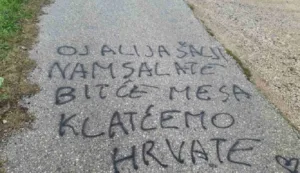 OJ ALIJA ŠALJI
NAM SALATE
BIT ĆE MESA
KLAT ĆEMO
HRVATE